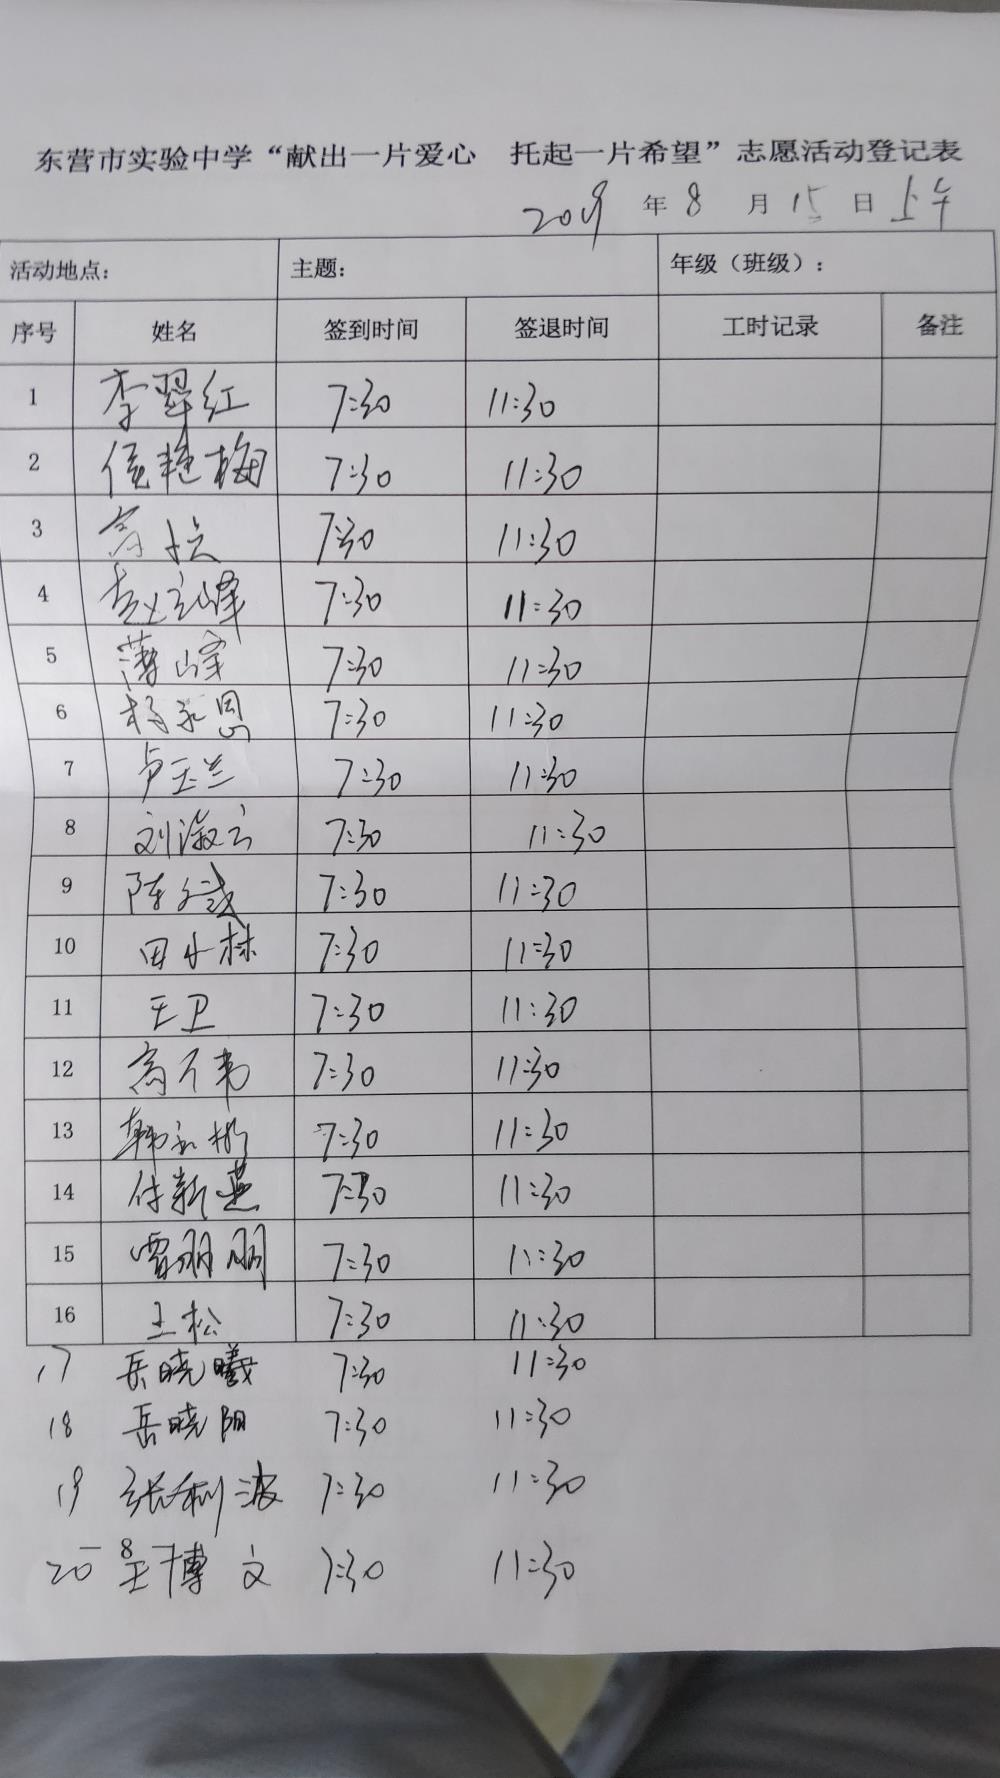 东营市实验中学“献出一片爱心 托起一片希望”志愿活动登记表
2019 年 8 月 15 日 上午
活动地点: 主题: 年级（班级）:
序号 姓名 签到时间 签退时间 工时记录 备注
1 李翠红 7:30 11:30
2 侯艳梅 7:30 11:30
3 7:30 11:30
4 赵立峰 7:30 11:30
5 薄峰 7:30 11:30
6 杨永恩 7:30 11:30
7 卢玉兰 7:30 11:30
8 刘淑云 7:30 11:30
9 7:30 11:30
10 田小林 7:30 11:30
11 王卫 7:30 11:30
12 7:30 11:30
13 韩永彬 7:30 11:30
14 付新燕 7:30 11:30
15 贾丽丽 7:30 11:30
16 王松 7:30 11:30
17 岳晓曦 7:30 11:30
18 岳晓阳 7:30 11:30
19 张利波 7:30 11:30
20 王博文 7:30 11:30